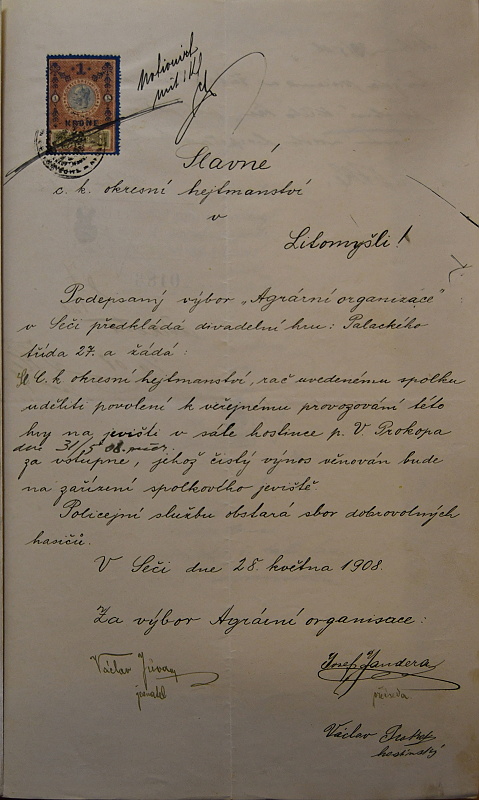 1
KRONE
Slavné
c. k. okresní hejtmanství
v
Litomyšli!
Podepsaný výbor „Agrární organizace"
v Seči předkládá divadelní hru: Palackého
třída 27. a žádá:
Sl C. k okresní hejtmanství, rač uvedenému spolku
uděliti povolení k veřejnému provozování této
hry na jevišti v sále hostince p. V. Prokopa
dne 31/5 08. večer
za vstupné, jehož čistý výnos věnován bude
na zařízení spolkového jeviště.
Policejní službu obstará sbor dobrovolných
hasičů.
V Seči dne 28. května 1908.
Za výbor Agrární organisace:
Václav
jednatel
Josef Jandera
předseda
Václav Prokop
hostinský